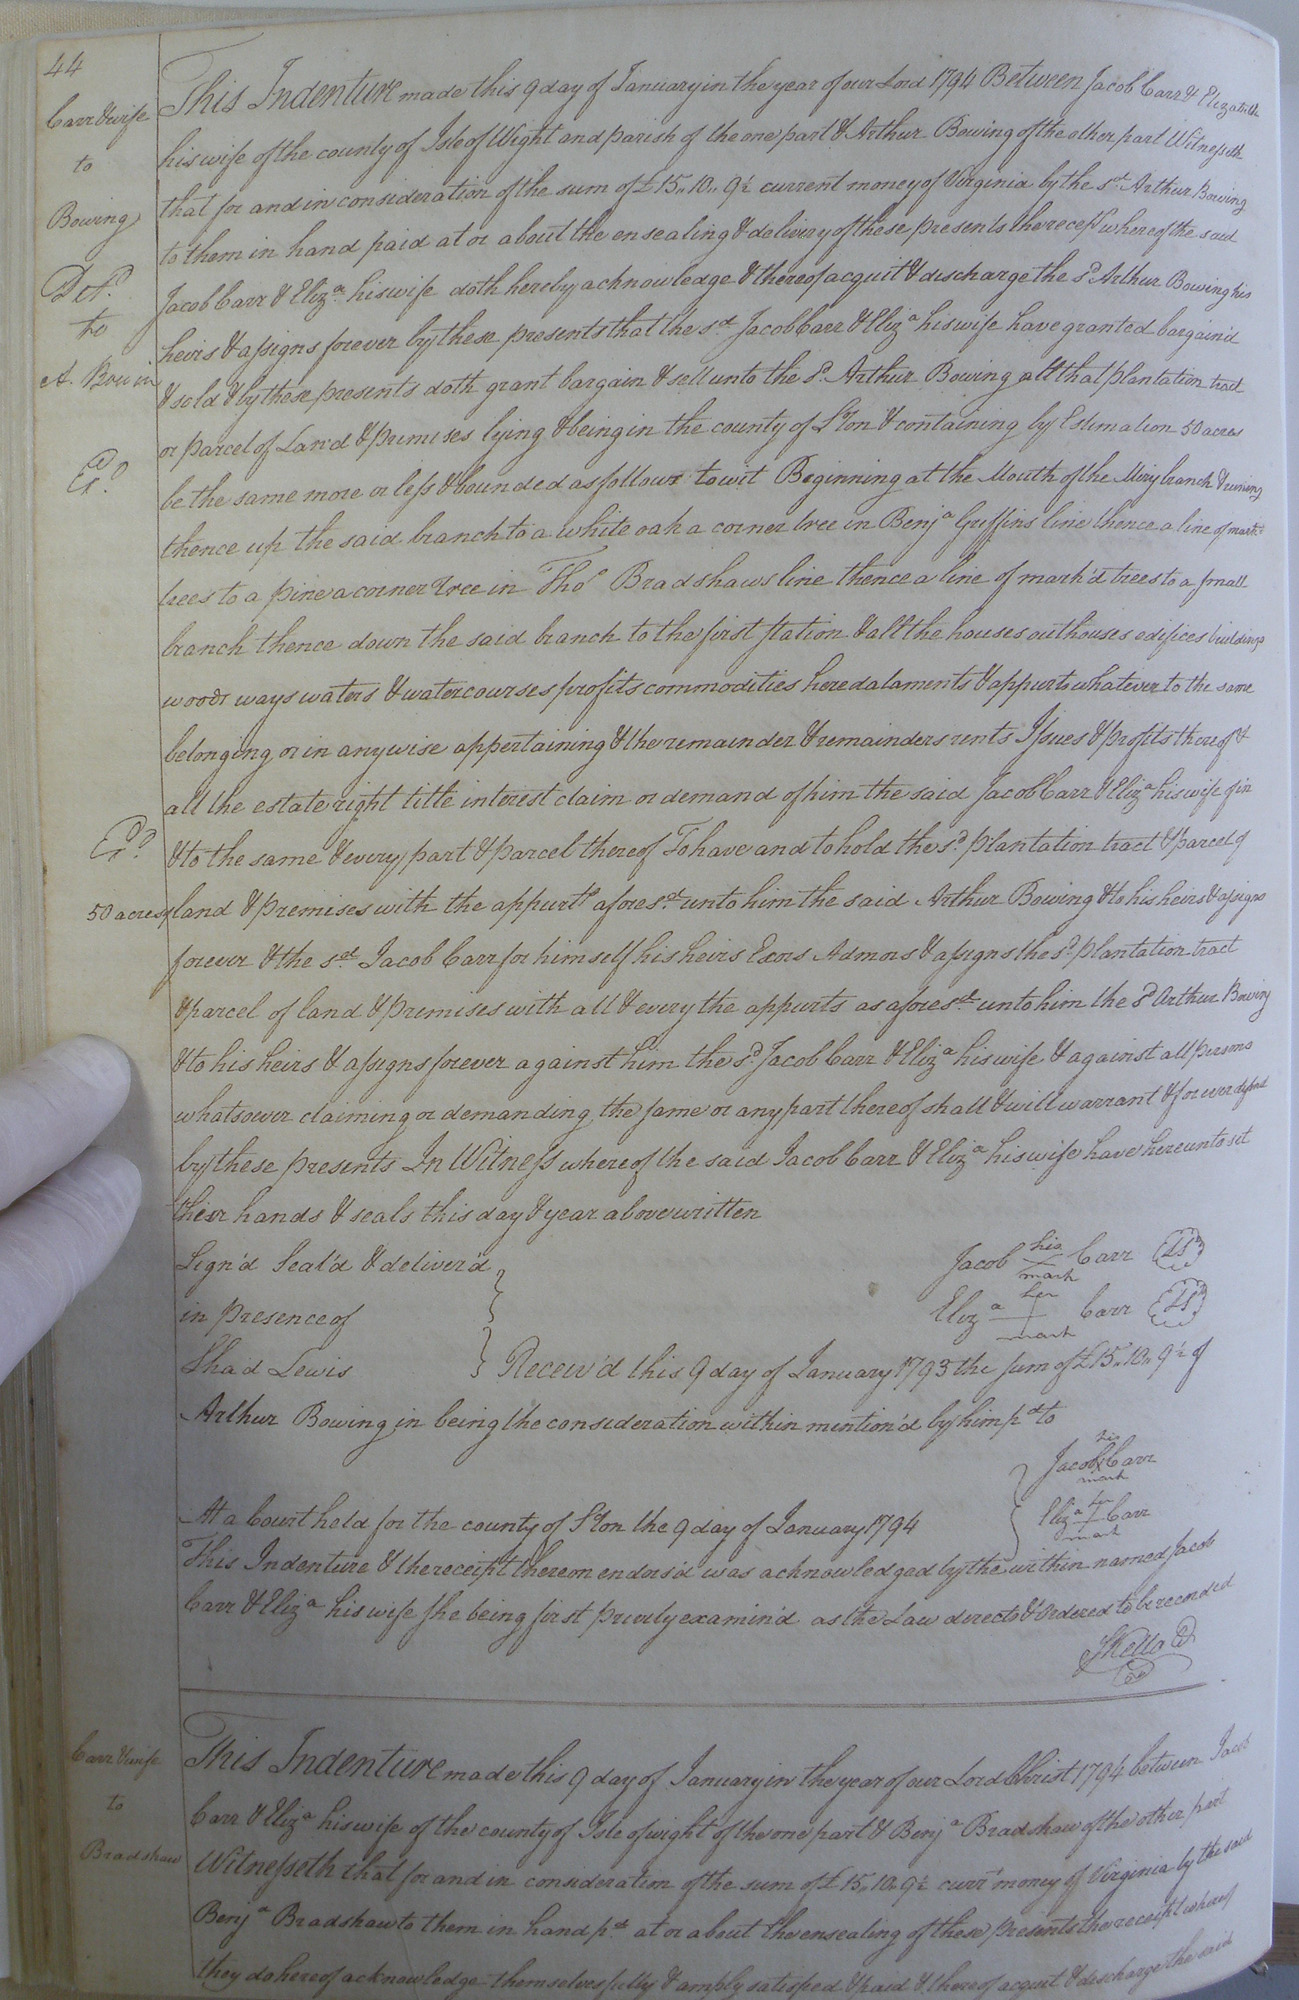 44
Carr & wife
to
Bowing
Del.d
to
A. Bowin
Ex.d
Ex.d
50 acres
This Indenture made this 9 day of January in the year of our Lord 1794 Between Jacob Carr & Elizabeth
his wife of the county of Isle of Wight and parish of the one part & Arthur Bowing of the other part Witnesseth
that for and in consideration of the sum of £15.. 10.. 9½ current money of Virginia by the sd. Arthur Bowing
to them in hand paid at or about the ensealing & delivery of these presents the recept whereof the said
Jacob Carr & Eliza his wife doth hereby acknowledge & thereof acquit & discharge the sd. Arthur Bowing his
heirs & assigns forever by these presents that the sd. Jacob Carr & Eliza his wife have granted bargain'd
& sold & by these presents doth grant bargain & sell unto the sd. Arthur Bowing all that plantation tract
or parcel of Land & premises lying & being in the county of S'ton & containing by Estimation 50 acres
be the same more or less & bounded as follows to wit Beginning at the Mouth of the Miry branch & runing
thence up the said branch to a white oak a corner tree in Benja Griffins line thence a line of mark'd
trees to a pine a corner tree in Thos Bradshaws line thence a line of mark'd trees to a small
branch thence down the said branch to the first station & all the houses outhouses edifices buildings
woods ways waters & watercourses profits commodities heredataments & appurts whatever to the same
belonging or in anywise appertaining & the remainder & remainders rents Issues & profits thereof &
all the estate right title interest claim or demand of him the said Jacob Carr & Eliza his wife of in
& to the same & every part & parcel thereof To have and to hold the sd. plantation tract & parcel of
land & premises with the appurts aforesd. unto him the said Arthur Bowing & to his heirs & assigns
forever & the sd. Jacob Carr for himself his heirs Exors Admors & assigns the sd. plantation tract
& parcel of land & premises with all & every the appurts as aforesd. unto him the sd Arthur Bowing
& to his heirs & assigns forever against him the sd. Jacob Carr & Eliza his wife & against all persons
whatsoever claiming or demanding the same or any part thereof shall & will warrant & forever defend
by these presents In Witness whereof the said Jacob Carr & Eliza his wife have hereunto set
their hands & seals this day & year above written
Sign'd Seal'd & deliver'd
in presence of
Shad Lewis
Jacob his mark Carr LS
Eliza her mark Carr LS
Receiv'd this 9 day of January 1793 the sum of £15.. 10.. 9½ of
Arthur Bowing in being the consideration within mention'd by him pd to
Jacob his mark Carr
Eliza her mark Carr
At a Court held for the county of S'ton the 9 day of January 1794
This Indenture & the receipt thereon endors'd was acknowledged by the within named Jacob
Carr & Eliza his wife she being first privily examin'd as the Law directs & Ordered to be recorded
SKello
Carr & wife
to
Bradshaw
This Indenture made this 9 day of January in the year of our Lord Christ 1794 between Jacob
Carr & Eliza his wife of the county of Isle of wight of the one part & Benja Bradshaw of the other part
Witnesseth that for and in consideration of the sum of £15.. 10.. 9½ currt money of Virginia by the said
Benja Bradshaw to them in hand pd. at or about the ensealing of these presents the receipt whereof
they do hereof acknowledge themselves fully & amply satisfied & paid & thereof acquit & discharge the said